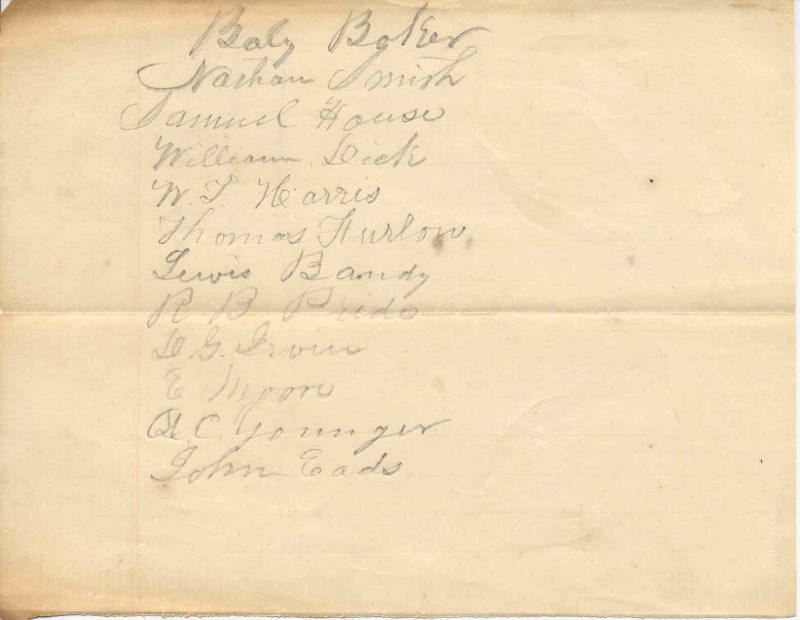 Baly Baker
Nathan Smith
Samuel House
William Dick
W. T. Harris
Thomas Furlow
Lewis Bandy
R. B. Pride
D. G. Irvin
E Moon
C. Younger
John Eads